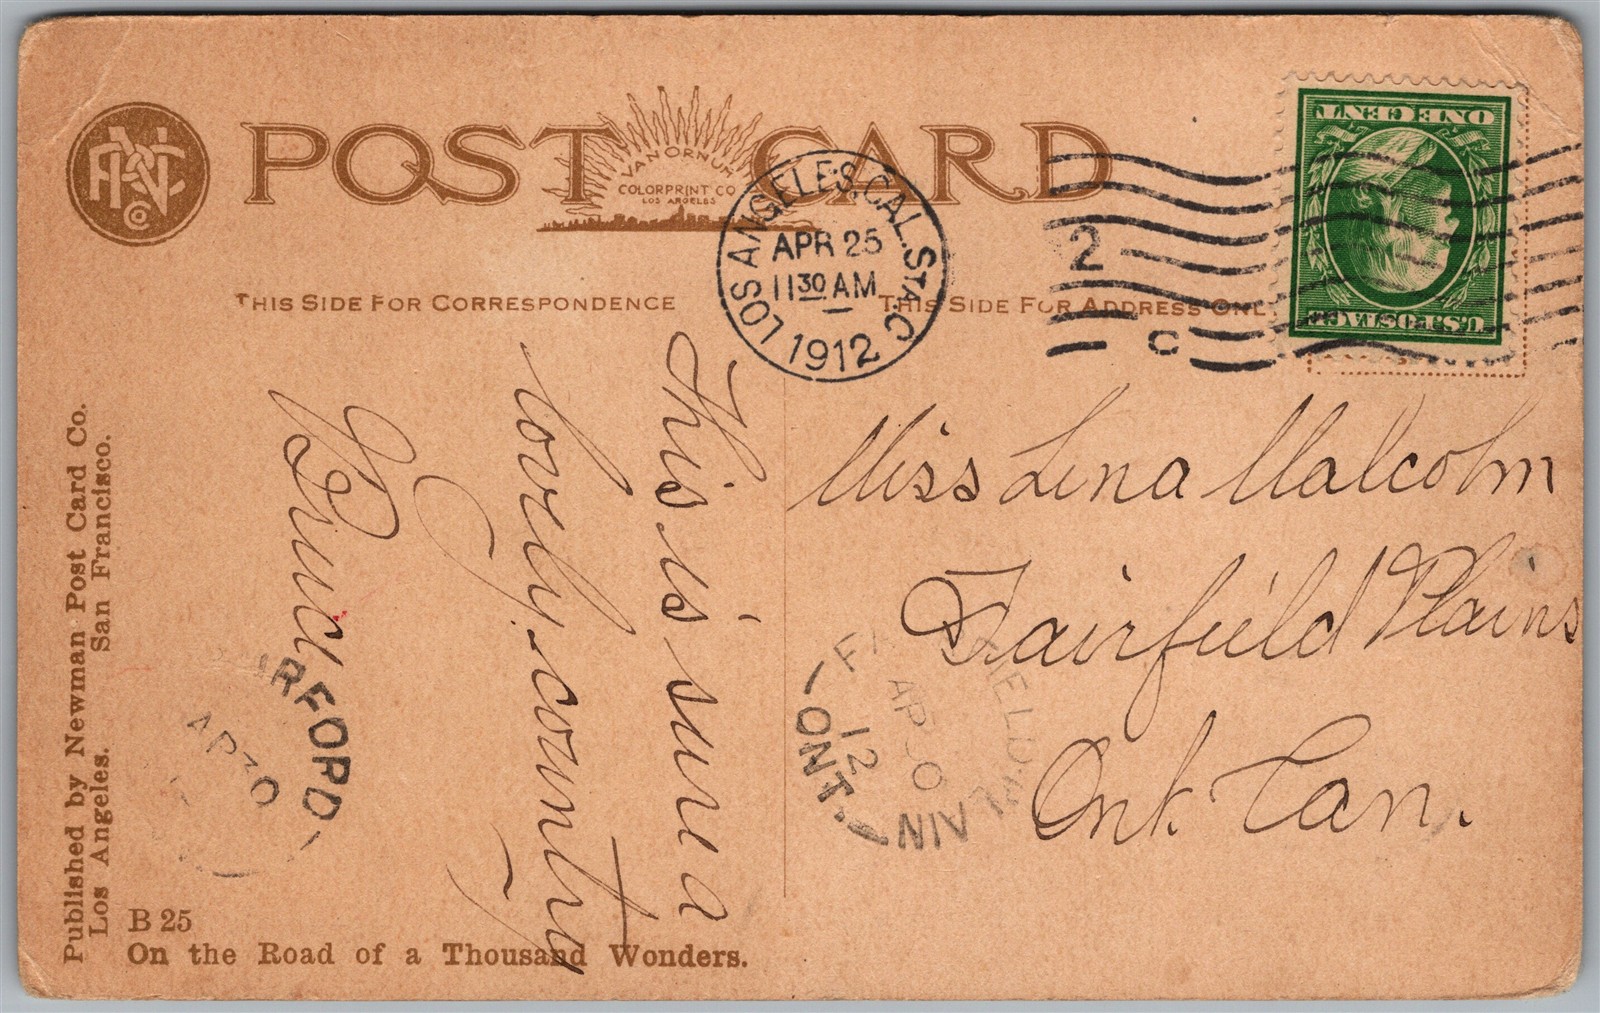 POST CARD
VAN ORNUM
COLORPRINT CO
LOS ANGELES
THIS SIDE FOR CORRESPONDENCE
THIS SIDE FOR ADDRESS ONLY
LOS ANGELES, CAL. STA. C
APR 25
11 30 AM
1912
2
C
ONE CENT
U.S. POSTAGE
This is sure a
lovely country
Miss Lena Malcolm
Fairfield Plains
Ont. Can.
AP 30
12
ONT.
AP 30
Published by Newman Post Card Co.
Los Angeles. San Francisco.
B 25
On the Road of a Thousand Wonders.